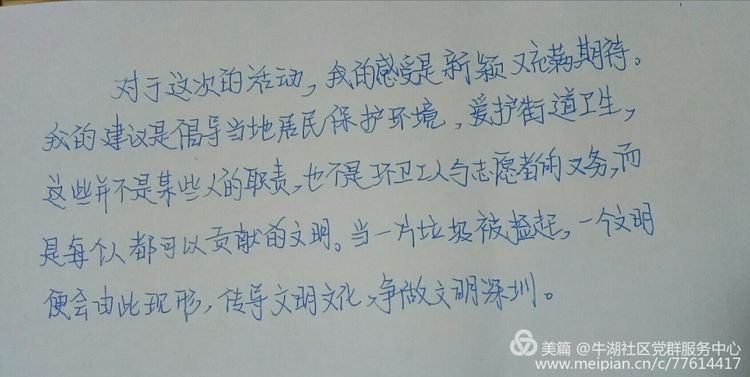 对于这次的活动，我的感受是新颖又充满期待。
我的建议是倡导当地居民保护环境，爱护街道卫生，
这些并不是某些人的职责，也不是环卫工人与志愿者的义务，而
是每个人都可以贡献的文明。当一片垃圾被捡起，一个文明
便会由此现形，传导文明文化，争做文明深圳。
美篇 @牛湖社区党群服务中心
www.meipian.cn/c/77614417